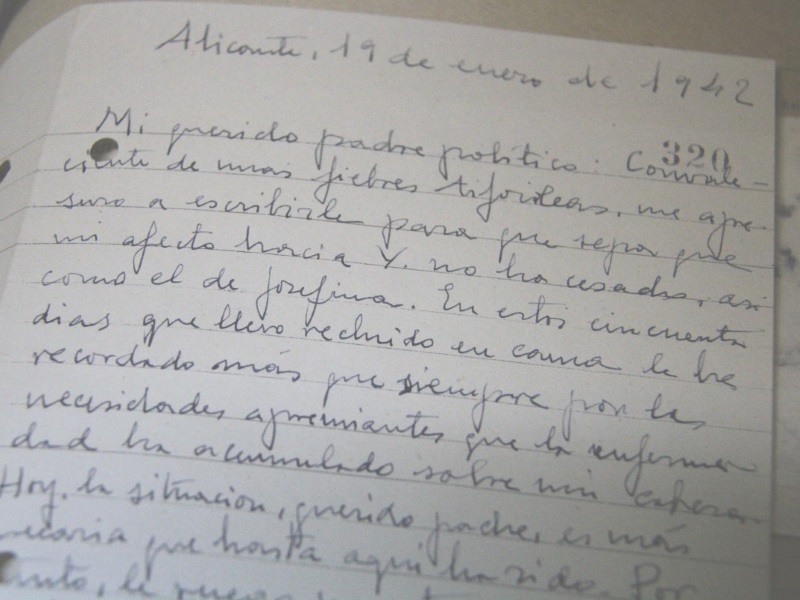 Alicante, 19 de enero de 1942
320
Mi querido padre político: Convale-
ciente de unas fiebres tifoideas, me apre-
suro a escribirle para que sepa que
mi afecto hacia V. no ha cesado, así
como el de Josefina. En estos cincuenta
días que llevo recluido en cama le he
recordado más que siempre por las
necesidades apremiantes que la enferme-
dad ha acumulado sobre mi cabeza.
Hoy, la situación, querido padre, es más
que hasta aquí ha sido. Por
le ruego